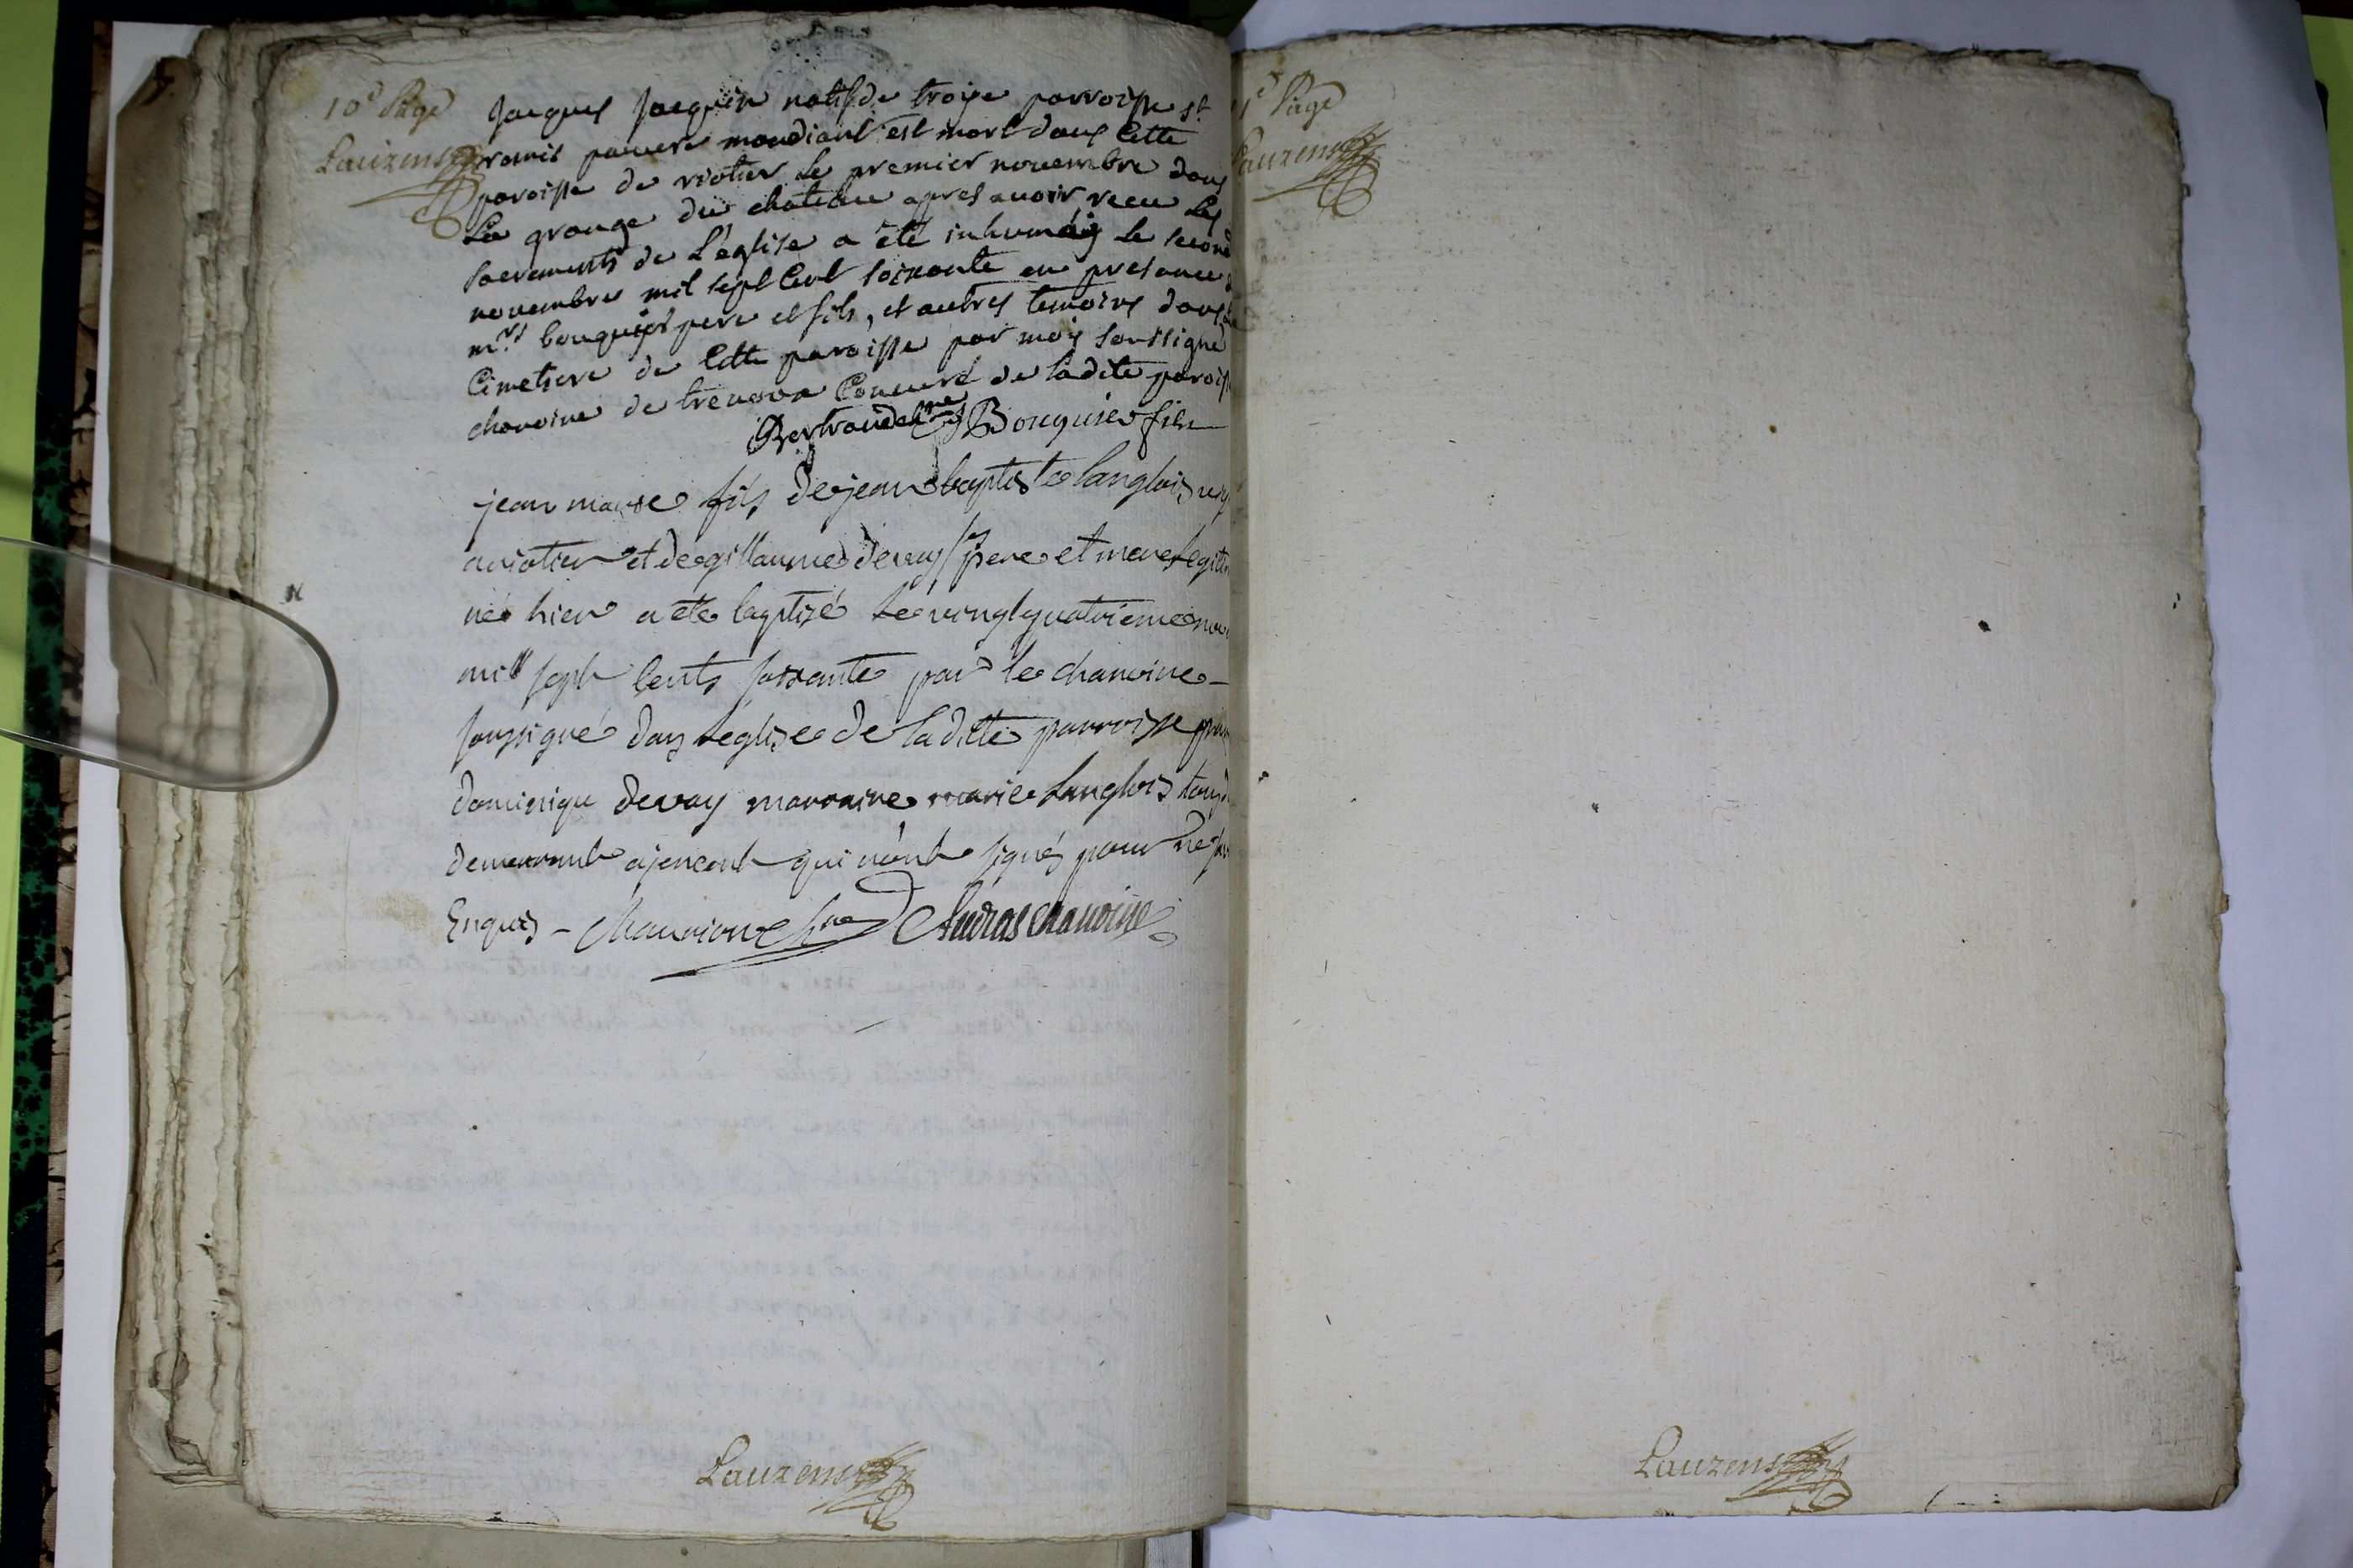 10e Page
Lauzens
Jacques Jacquin natif de troije parroisse st
remis pauvre mandiant est mort dans Cette
paroisse de riotier le premier novembre dans
La grange du chateau apres avoir receu Les
sacrements de L'eglise a été inhumé le second
novembre mil sept Cent soixante en presance
mrs bouquier pere et fils, et autres temoins dans
Cimetiere de Cette paroisse par moy soussigné
chanoine de trevoux Concuré de ladite paroiss
Bertrand chne Bouquier fils
jean marie fils de jean baptiste langlois
a riotier et de gillaume devay pere et mere legit
né hier a ete baptizé le vingt quatrieme nov
mill sept Cents soixante par le chanoine
soussigné dans l'eglise de laditte parroisse
dominique devay marraine marie langlois tous
demeurant a jencent qui n'ont signés pour ne
Enquis - Chanoine Audras chanoine
Lauzens
Page
Lauzens
Lauzens